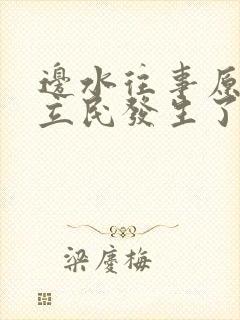 邊水往事原
立民發生了
梁慶梅